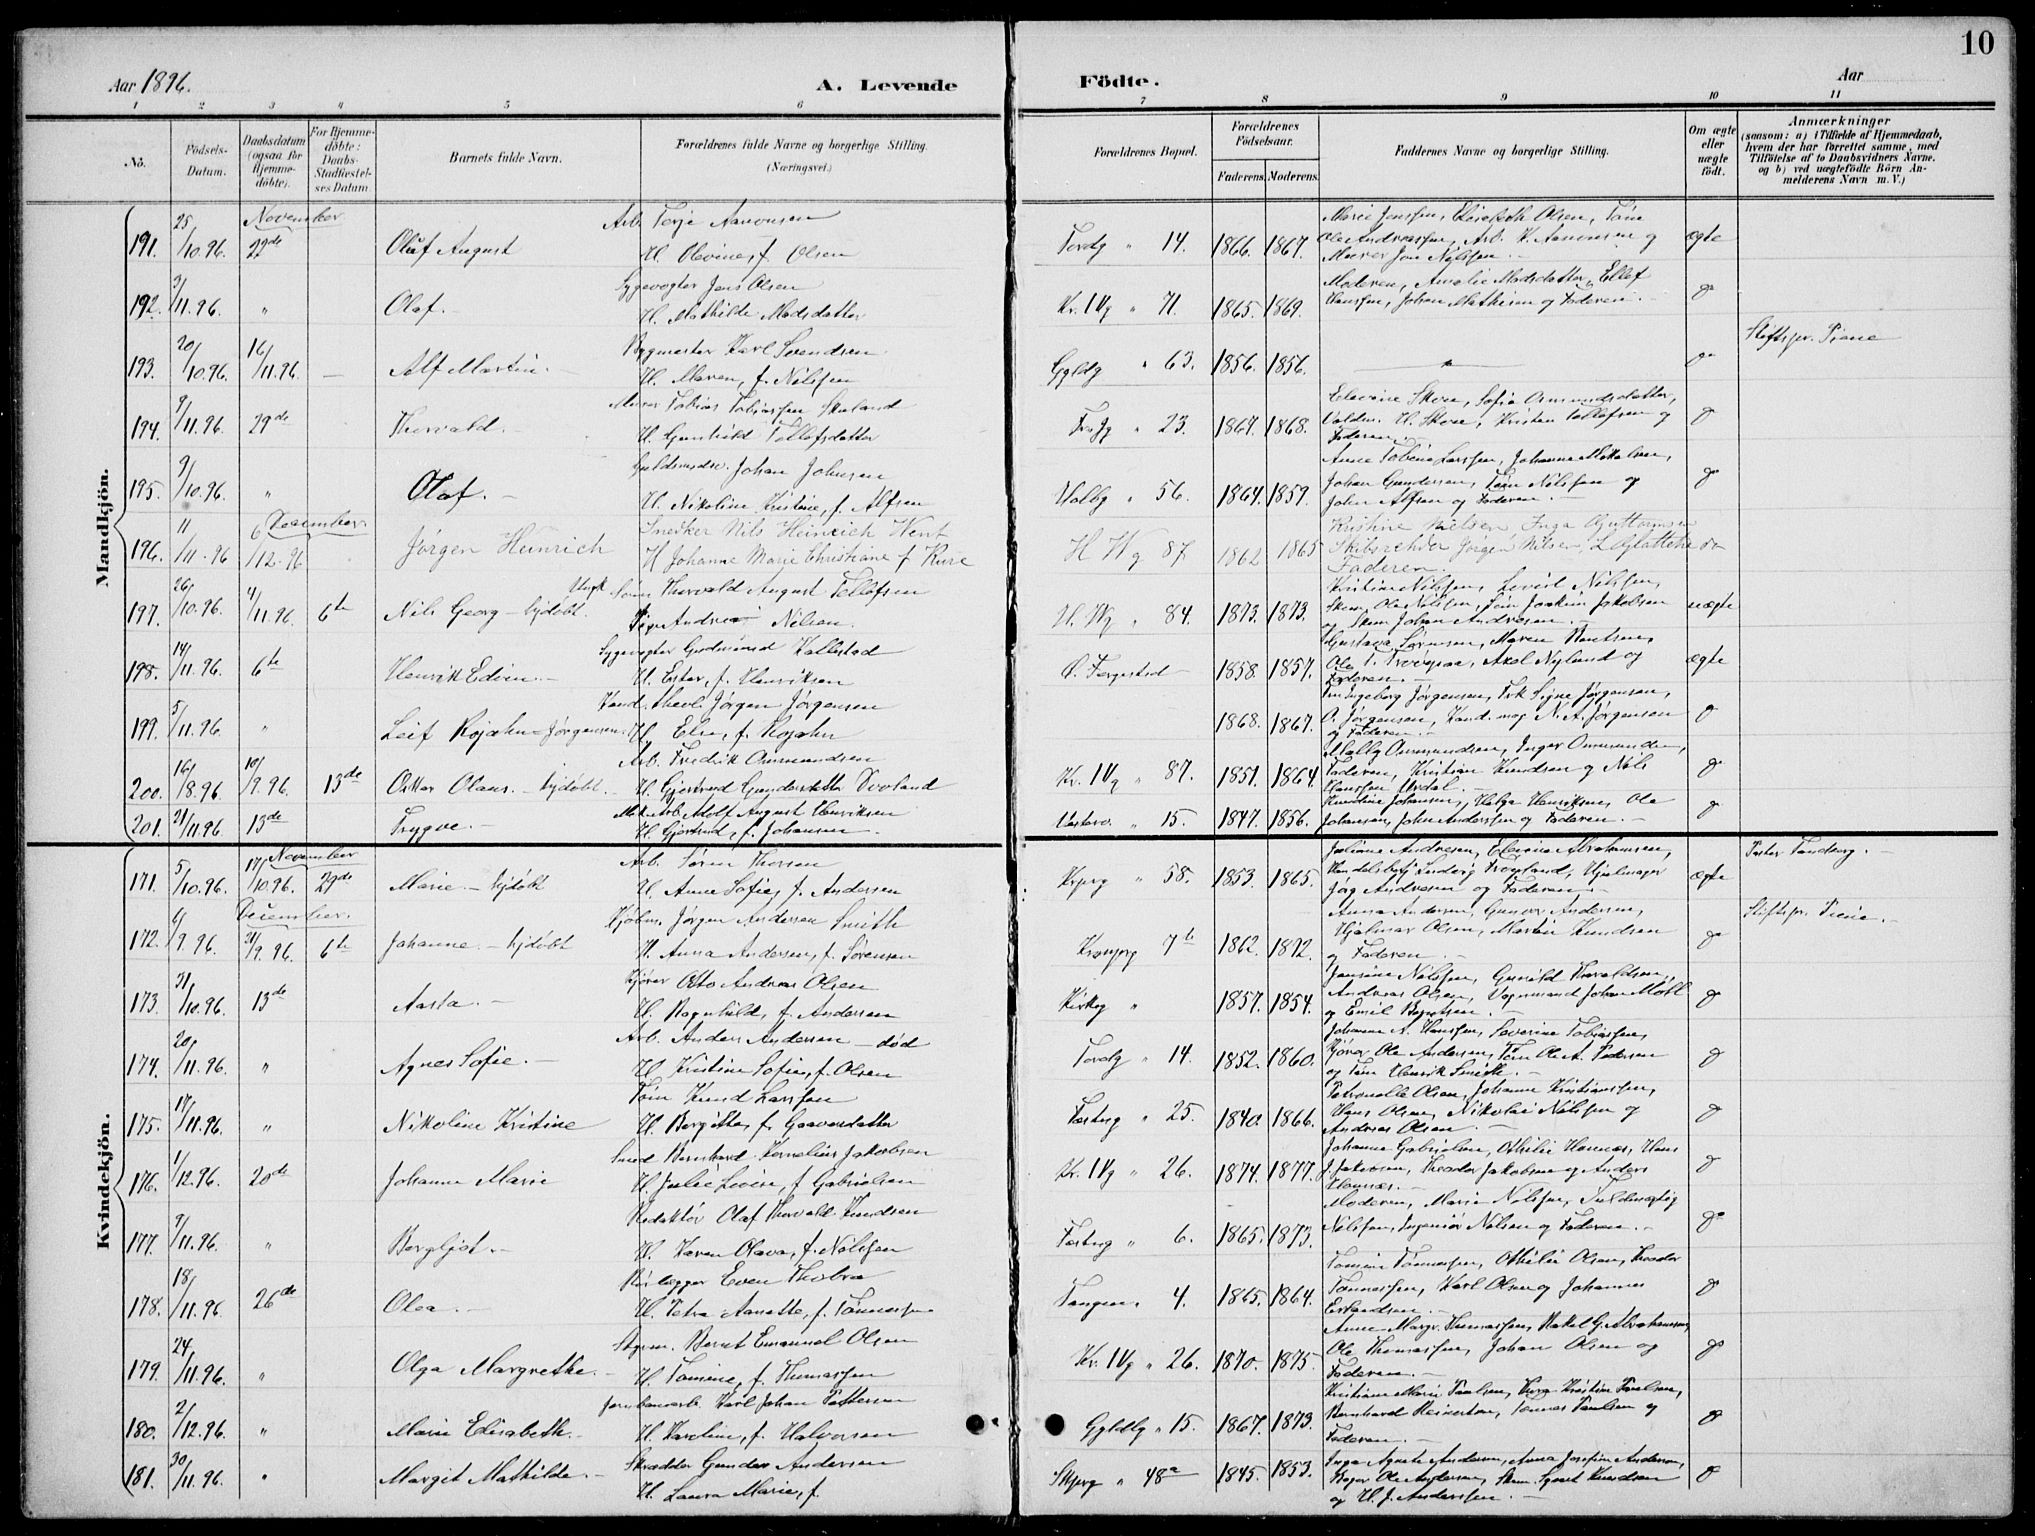 10
Aar 1896.
A. Levende Födte.
Aar
1 2 3 4 5 6 7 8 9 10 11
Nö.
Födsels-Datum.
Daabsdatum (ogsaa for Hjemme-döbte).
For Hjemme-döbte: Daabs-Stadfæstel-ses Datum
Barnets fulde Navn.
Forældrenes fulde Navne og borgerlige Stilling. (Næringsvei.)
Forældrenes Bopæl.
Forældrenes Födselsaar.
Faderens. Moderens.
Faddernes Navne og borgerlige Stilling.
Om ægte eller uægte födt.
Anmærkninger
(saasom: a) i Tilfælde af Hjemmedaab, hvem der har forrettet samme, med Tilföielse af to Daabsvidners Navne. og b) ved uægtefödte Börn Anmelderens Navn m. V.)
Mandkjön.
November
191. 25/10.96. 22de Oluf August Arb. Terje Aanonsen
H. Olevine, f. Olsen
Tordg " 14. 1866. 1867. Marie Jenssen, Elisabeth Olsen, Töm
Ole Andreassen, Arb. K. Aanonsen og ægte
Murer Jon Nilssen.
192. 3/11.96. " Olaf. Sygevogter Jens Olsen
H. Mathilde Madsdatter
Kr. IVg " 71. 1865. 1869. Moderen, Amalie Madsdatter, Ellef
Hanssen, Johan Mathisen og Faderen. do
193. 20/10.96. 16/11.96. Alf Martin. Bygmester Karl Svendsen
H. Maren, f. Nilssen
Gyldg " 63. 1856. 1856. " do Stiftspr. Piene
194. 9/11.96. 29de Thorvald. Murer Tobias Tobiassen Skaland
H. Gunhild Tellefsdatter
23. 1864. 1868. Elevine Skore, Sofie Osmundsdatter,
Valdm. H. Skore, Kristen Tellefsen og
Faderen. do
195. 9/10.96. " Olaf. Guldsmedsv. Johan Johnsen
H. Nikoline Kristine, f. Alfsen
Volbg " 56. 1864. 1859. Anne Tobine Larssen, Johanne Mikalsen,
Johan Gundersen, Töm Nilssen og
John Alfsen og Faderen. do
December
196. 11/11.96 6/12.96 Jørgen Heinrich Snedker Nils Heinrich Went
H Johanne Marie Christiane f Kure
H Wg 87 1862 1865 Kristine Nielsen Inga Guttormsen
Skibsreder Jørgen Nilsen,
Faderen.
197. 26/10.96. 4/11.96. 6te Nils Georg - hjdøbt. Ungk Sömm Thorvald August Tellefsen
Pige Andrea Nilsen.
H. Wg " 84. 1873. 1873. Kristine Nilssen, Levine Nilssen,
Skom. Ole Nilssen, Töm Joakim Jakobsen uægte
og Skom Johan Andresen.
198. 14/11.96. 6te Henrik Edvin. Sygevogter Gudmund Kallestad
H. Ester, f. Henriksen
Ø. Fergested 1858. 1857. Gustava Sørensen, Maren Bentsen,
Axel Nyland og ægte
Faderen.
199. 5/11.96. " Leif Rojahn-Jørgensen. Kand. theol. Jørgen Jørgensen
H. Elsa, f. Rojahn
1868. 1867. Fru Ingeborg Jørgensen, Frk Signe Jørgensen,
O. Jørgensen, Kand. mag N. A. Jørgensen
og Faderen. do
200. 16/8.96. 10/9.96. 13de Oskar Olaus. - hjdøbt. Arb. Fredrik Ommundsen
H. Gjertrud Gundersdatter
Kr. IVg " 87. 1851. 1864. Mally Ommundsen, Inger Ommundsen,
Faderen, Kristian Knudsen og Nils
Hanssen Årdal. do
201. 21/11.96 13de Trygve. Mek. Arb. Adolf August Henriksen
H. Gjertrud, f. Johansen.
15. 1847. 1856. Knudine Johansen, Helga Henriksen, Ole
Johansen, John Anderssen og Faderen. do
Kvindekjön.
November
171. 5/10.96. 17/10.96. 29de Marie - hjdøbt Arb. Sören Thorsen
H. Anne Sofie, f. Andersen
58. 1853. 1865. Juliane Andresen, Elevine Abrahamsen,
Handelsbetj Ludvig Frøysland, Hjelmager
Jørg Andresen og Faderen. ægte
December.
172. 6/9.96. 21/9.96. 6te Johanne. - hjdøbt Kjøbm. Jörgen Andersen Smith
H. Anna Andersen, f. Sørensen
7b 1862. 1872. Anna Andersen, Gunvor Andersen,
Hjalmar Olsen, Martin Knudsen
og Faderen. do Stiftspr. Piene.
173. 31/10.96. 13de Aasta. Kjører Otto Andreas Olsen
H. Ragnhild, f. Andersen
Kirkeg " 1857. 1854. Jensine Nilssen, Gunild Haraldsen,
Andreas Olsen, Vognmand Johan Moll
og Emil Berntsen. do
174. 20/11.96. " Agnes Sofie. Arb. Anders Andersen - död
H. Kristine Sofie, f. Olsen
Tordg " 14. 1852. 1860. Johanne A. Hanssen, Severine Tobiassen,
Kjører Ole Andersen, Töm Ole A. Pedersen
og Töm Henrik Smith. do
175. 17/11.96. " Nikoline Kristine Töm Knud Larssen
H. Bergitte, f. Gaaversdatter
Festng " 25. 1840. 1866. Petronelle Olsen, Johanne Kristianssen,
Hans Olsen, Nikolai Nilssen og
Andreas Olsen. do
176. 1/12.96. 20de Johanne Marie Smed Bernhard Kornelius Jakobsen
H. Julie Lovise, f Gabrielsen
Kr. IVg " 26. 1874. 1877. Johanne Gabrielsen, Othilie Hannæs, Hans
J. Jakobsen, Theodor Jakobsen og Anders
Hannæs. do
177. 9/11.96. " Bergljot. Redaktör Olaf Thorvald Knudsen
H. Karen Olava, f. Nilssen
Festng " 6. 1865. 1873. Moderen, Marie Nilssen, Fuldmægtig
Nilssen, Ingeniör Nilsen og Faderen. do
178. 18/11.96 26de Olea. Rörlægger Even Thobro
H. Petra Aanette, f. Tönnessen
Tangen " 4. 1865. 1864. Tomine Tönnessen, Othilie Olsen, Theodor
Tönnessen, Karl Olsen og Johannes
Erlandsen. do
179. 24/11.96. " Olga Margrethe. Styrm. Bernt Emanuel Olsen
H. Tomine, f. Thomassen
Kr. IVg " 26. 1870. 1875. Anne Margr. Thomassen, Rakel G. Abrahamsen,
Ole Thomassen, Johan Olsen og
Faderen. do
180. 2/12.96. " Marie Elisabeth. Jernbanearb. Karl Johan Pettersen
H. Karoline, f. Halvorsen
Gyldlg " 15. 1867. 1873. Kristiane Marie Paulsen, Kristine Paulsen,
Bernhard Reinertsen, Tönnes Paulsen og
Faderen. do
181. 30/11.96. " Margit Mathilde. Skrædder Gunder Andersen
H. Laura Marie, f.
48a 1845. 1853. Inga Agnete Andersen, Anna Josefine Andersen,
Bager Ole Andersen, Skom. Syvert Knudsen
og H. J. Anderssen. do